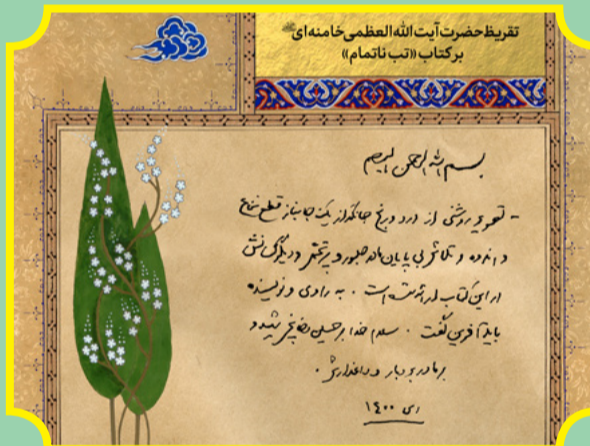 تقریظ حضرت آیت الله العظمی خامنه‌ای
بر کتاب «تب ناتمام»
بسم الله الرحمن الرحیم
- تصویر روشنی از درد و رنج جانکاه از یک جانباز قطع نخاع
و اندوه و تلاش بی پایان مادر صبور و پرتحمل و دیگر کسانش
در این کتاب ارائه شده است. به راوی و نویسنده
باید آفرین گفت. سلام خدا بر حسین دخانچی شهید و
بر مادر بردبار و داغدارش.
دی ۱۴۰۰